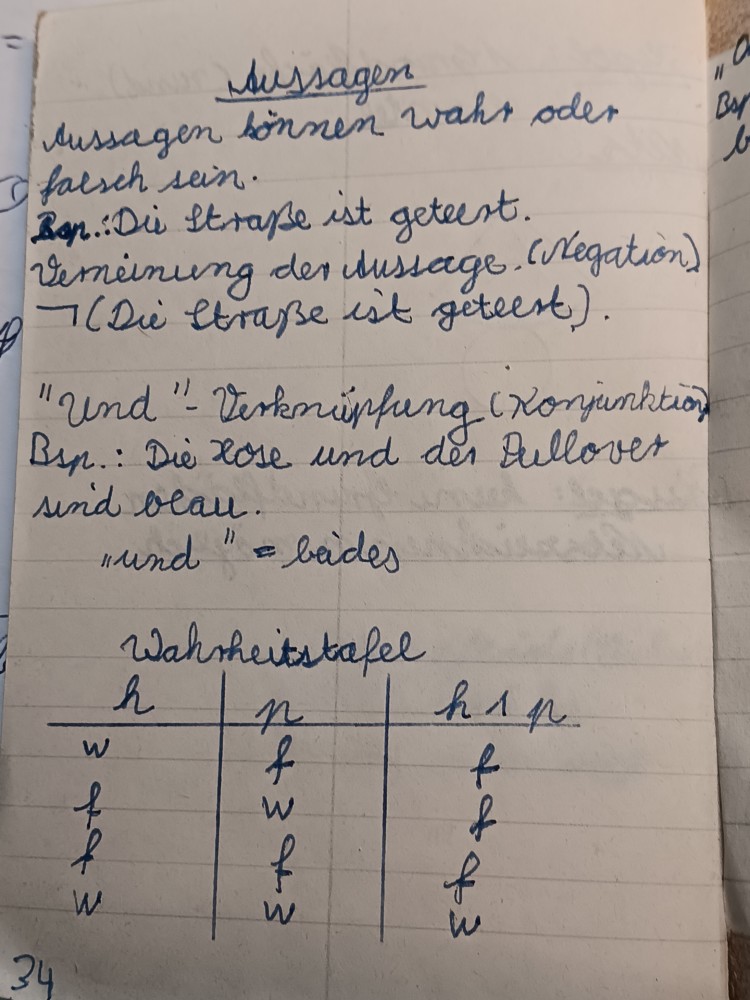 Aussagen
Aussagen können wahr oder
falsch sein.
Bsp.: Die Straße ist geteert.
Verneinung der Aussage. (Negation)
¬(Die Straße ist geteert).
"Und"- Verknüpfung (Konjunktion)
Bsp.: Die Hose und der Pullover
sind blau.
„und" = beides
Wahrheitstafel
h p h ∧ p
w f f
f w f
f f f
w w w
34
"
Bsp